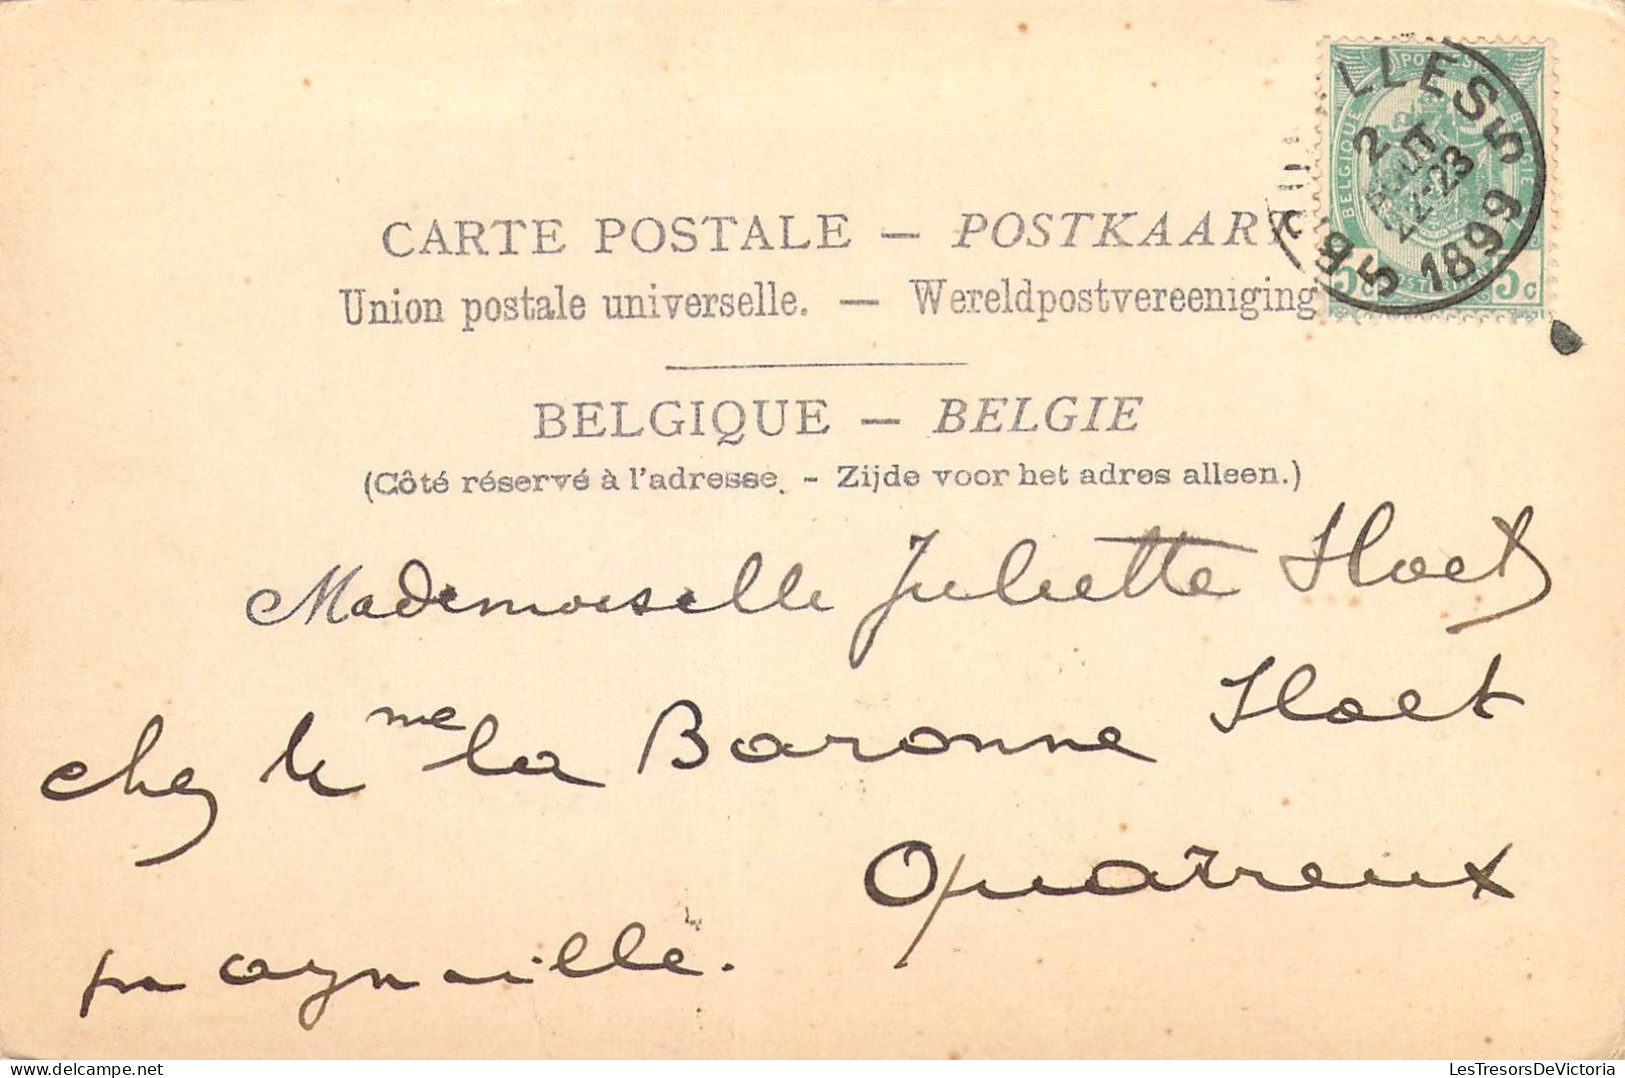 CARTE POSTALE — POSTKAART
Union postale universelle. — Wereldpostvereeniging
BELGIQUE — BELGIE
(Côté réservé à l'adresse. - Zijde voor het adres alleen.)
BELGIQUE
5c 5c
LLES 5
2
AOUT
22-23
1899
5
Mademoiselle Juliette Hoet
chez Me la Baronne Hoet
Quatreux
par aynaille.
LesTresorsDeVictoria